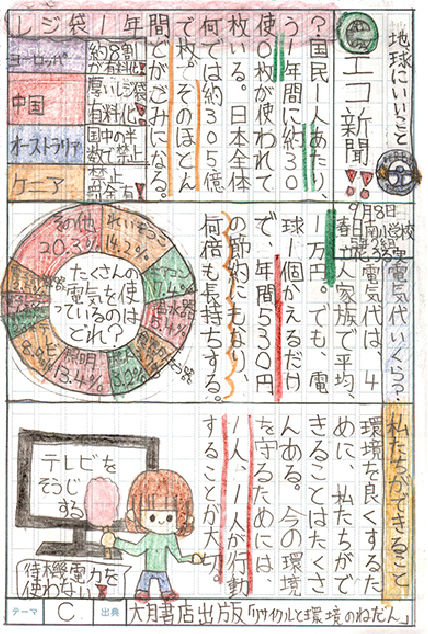 地球にいいこと
エコ新聞!!
9月8日
春日南小学校
レジ袋1年
?国民1人あたり、
う1年間に約30
使0枚が使われて
枚いる。日本全体
何では約305億
で枚。そのほとん
間どがごみになる。
ヨーロッパ
約8割が有料化
中国
厚いレジ袋有料化
オーストラリア
国中の半数で禁止
ケニア
禁止
電気代いくらっ?
電気代は、4
人家族で平均、
1万円。でも、電
球1個かえるだけ
で、年間530円
の節約にもなり、
何倍も長持ちする。
たくさんの電気を使っているのはどれ?
れいぞうこ
14.2%
エアコン
7.4%
照明
13.4%
その他
20.3%
私たちができること
環境を良くするた
めに、私たちがで
きることはたくさ
んある。今の環境
を守るためには、
1人、1人が行動
することが大切。
テレビをそうじする
待機電力を使わない
テーマ C 出典 大月書店出版「リサイクルと環境のねだん」